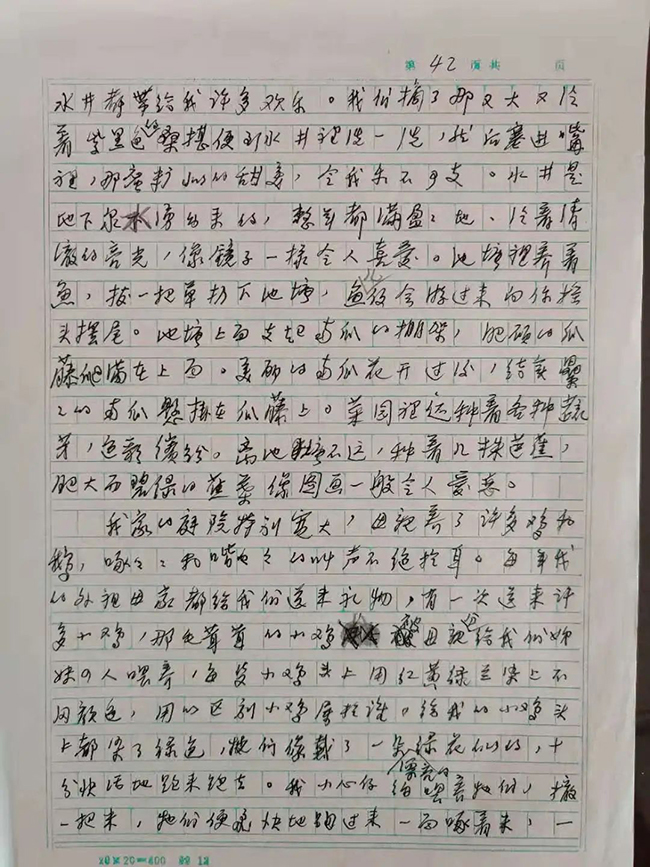 第 42 页共 页
水井都带给我许多欢乐。我们摘了那又大又泛
着紫黑色的桑椹便到水井裡洗一洗，然后塞进嘴
裡，那蜜糖似的甜美，令我乐不可支。水井是
地下泉涌出来的，整年都满盈盈地、泛着清
澈的亮光，像镜子一样令人喜爱。池塘裡养着
鱼，拔一把草扔下池塘，鱼儿会游过来向你摇
头摆尾。池塘上面支起南瓜的棚架，肥硕的瓜
藤爬满在上面。美丽的南瓜花开过后，结实累
之的南瓜悬挂在瓜藤上。菜园裡还种着各种蔬
菜，色彩缤纷。离池塘不远，种着几株芭蕉，
肥大而碧绿的蕉叶像图画一般令人爱喜。
我家的庭院特别宽大，母親养了许多鸡和
鹅，啄々々和嘈々的叫声不绝於耳。每年我
的外祖母家都给我们送来礼物，有一次送来许
多小鸡，那毛茸茸的小鸡被母親给我们姊
妹四人喂养，每隻小鸡头上用红黄绿兰染上不
同颜色，用以区别小鸡属於谁。给我的小鸡头
上都染了绿色，她们像戴了一朵绿花似的，十
分快活地跑来跑去。我小心仔细喂养她们，撒
一把米，她们便飞快地跑过来一面啄着米，一
20×20=400